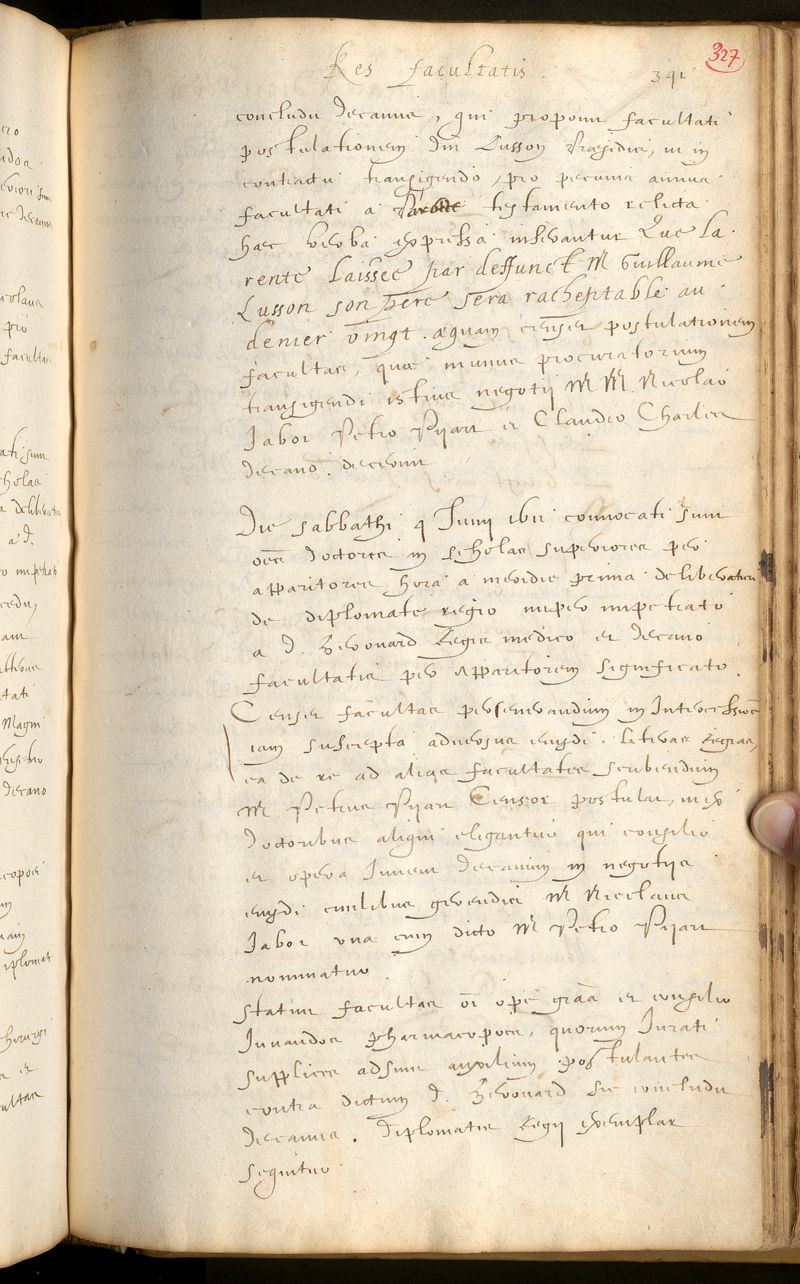 Res facultatis.
391
327
concludit decanus, qui proponit facultati
postulationem dni Lusson Præsidici, ut in
contractu transigendo, pro pecunia annua
facultati a testamento relicta
hæc verba expressa inserantur Que la
rente laissee par deffunct Mr Guillaume
Lusson son pere sera rachetable au
denier vingt. æquam censet postulationem
facultas, quæ munus procuratorium
transigendi istius negotii M. M. Nicolao
Jabot Petro Pijart et Claudio Charles
decano. decernit
Die sabbathi 9 Junii ibii convocati sunt
oēs doctores in scholas superiores per
apparitores hora a meridie prima deliberaturi
de diplomate regio nuper impetrato
a d. Bevouard Regis medico et decano
facultatis per apparitorem significato.
Censet facultas perseverandum in Intercessione
iam suscepta adversus eiusdē literas Regias,
ea de re ad alias facultates scribendum
Mr Petrus Pijart Censor postulat, ut ex
doctoribus aliqui eligantur qui consilio
et opera Juvent decanum in negotiis
eiusdē gerendis Mr Nicolaus
Jabot una cum dicto Mr Petro Pijart
nominatur.
statuit facultas oī ope grāā et consilio
Juvandos Pharmacopoeos, quorum Jurati
supplices adsunt auxilium postulantes
contra dictum d. Bevouard sic concludit
decanus. diplomatis Regii exemplar
sequitur.